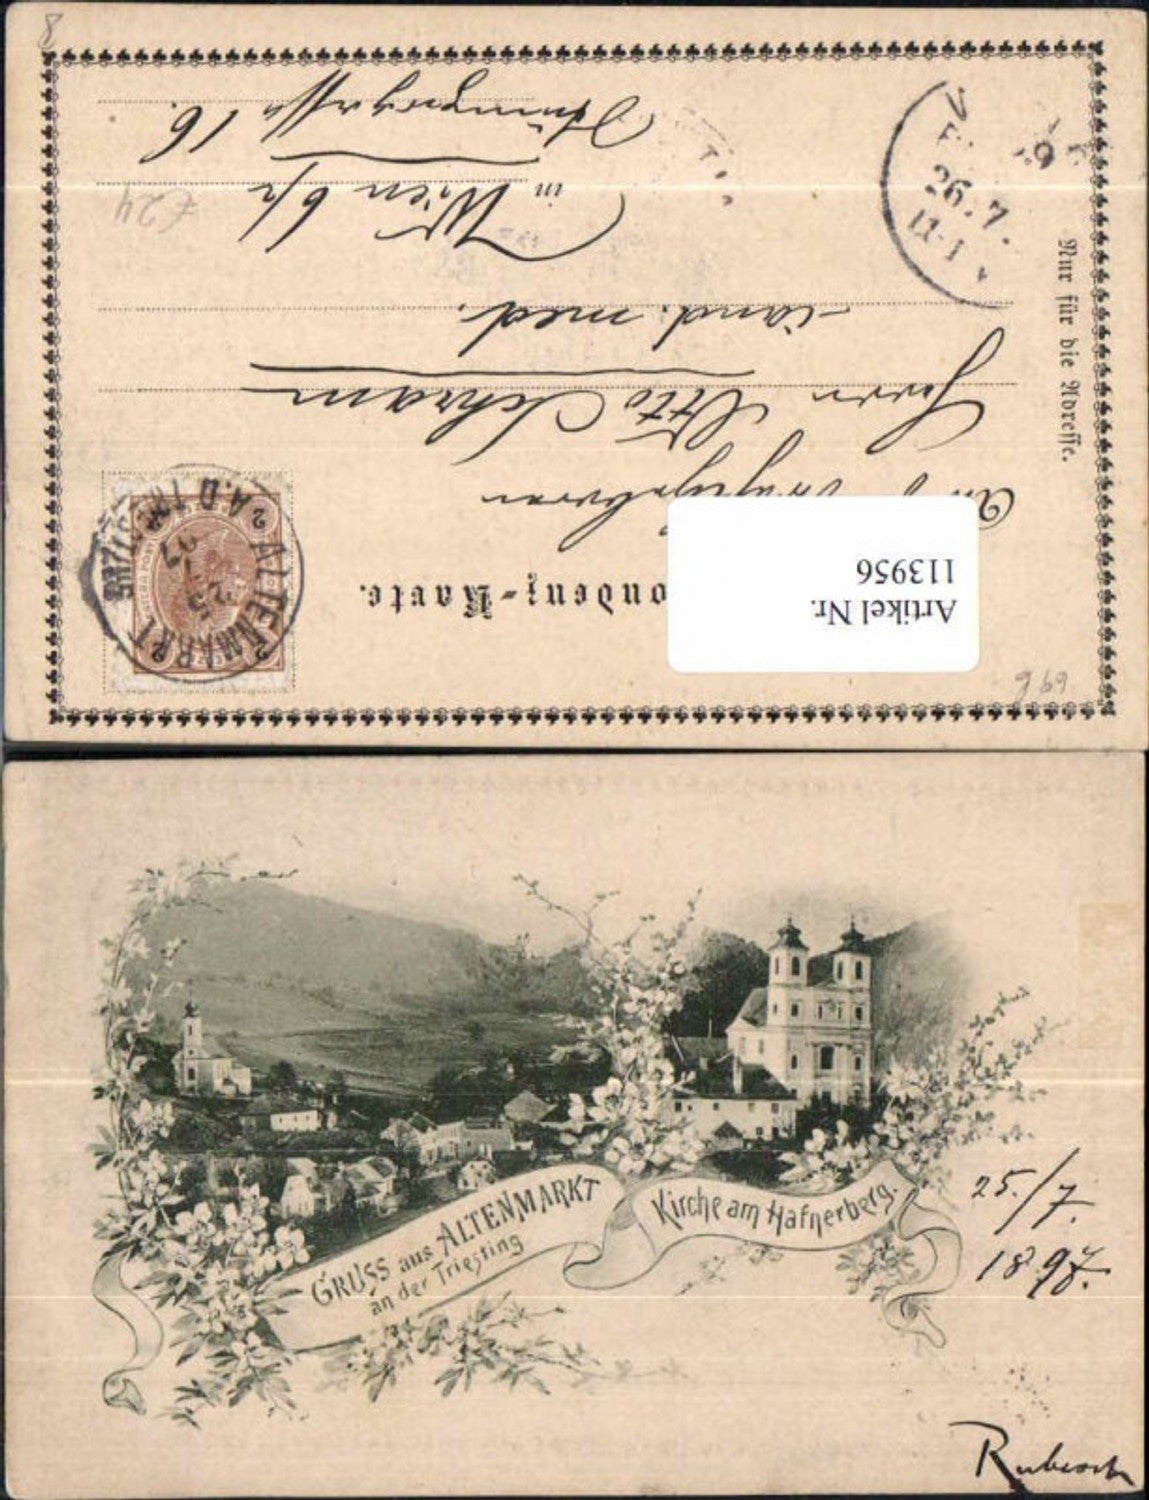 ondenz-Karte.
Artikel Nr.
113956
Herrn Otto Schramm
cand. med.
in Wien 6/2
16.
Nur für die Adresse.
ALTENMARKT
25
7
97
A.D. TRIESTING
2
2
2
2
26.7.
11-1
g69
£24
8
GRUSS aus ALTENMARKT
an der Triesting
Kirche am Hafnerberg.
25./7.
1897.